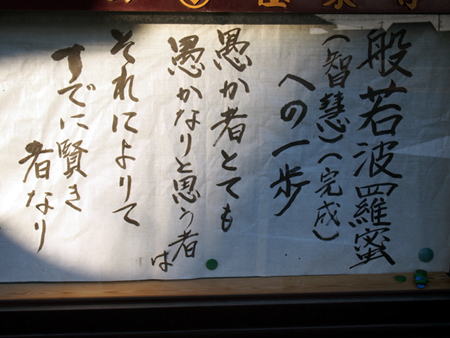 般若波羅蜜
(智慧)(完成)
への一歩
愚か者とても
愚かなりと思う者は
それによりて
すでに賢き
者なり